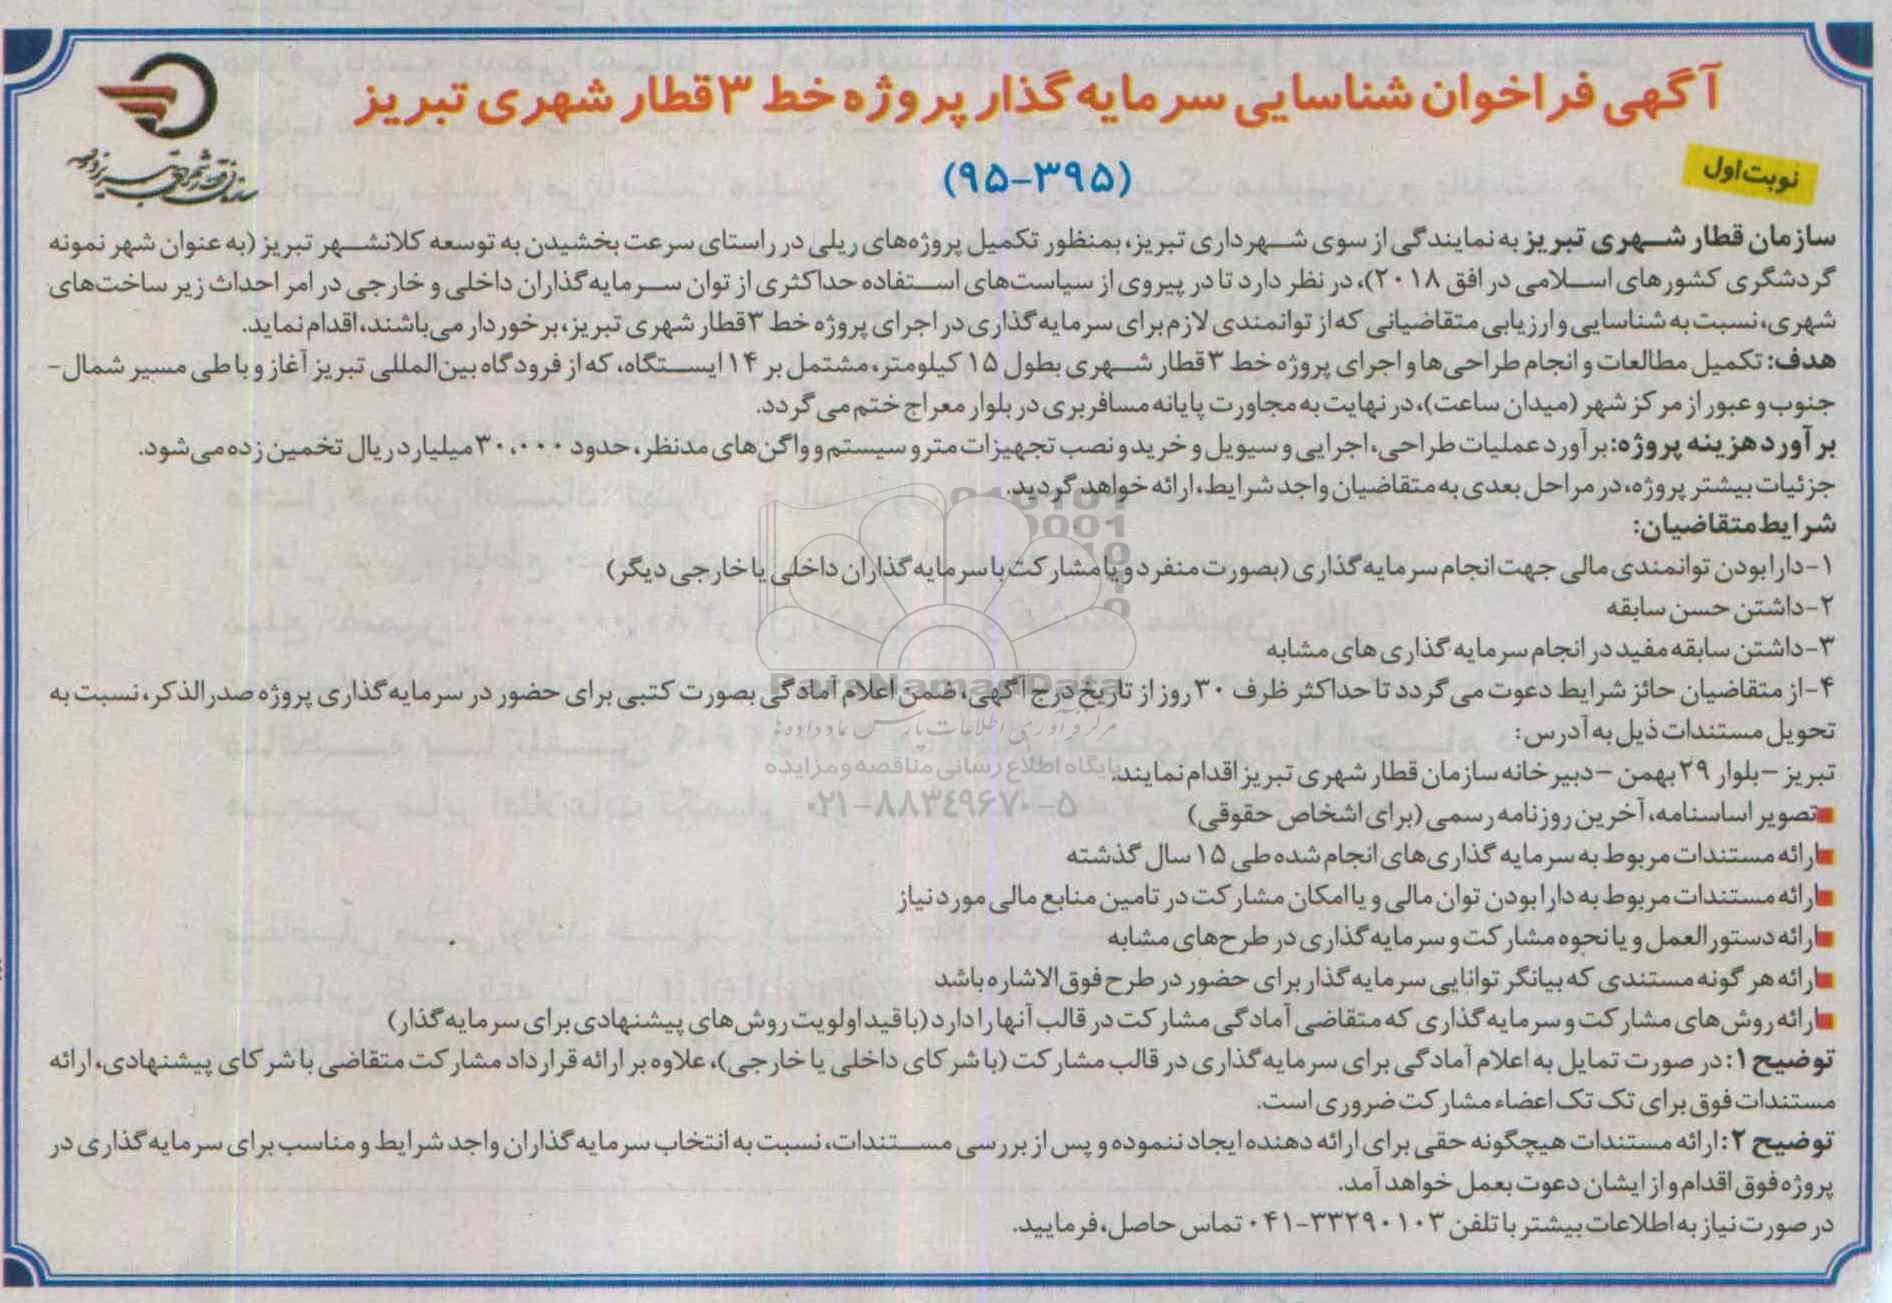 آگهی فراخوان شناسایی سرمایه‌گذار پروژه خط ۳ قطار شهری تبریز
(۹۵-۳۹۵)
نوبت اول
سازمان قطار شهری تبریز به نمایندگی از سوی شهرداری تبریز، بمنظور تکمیل پروژه‌های ریلی در راستای سرعت بخشیدن به توسعه کلانشهر تبریز (به عنوان شهر نمونه
گردشگری کشورهای اسلامی در افق ۲۰۱۸)، در نظر دارد تا در پیروی از سیاست‌های استفاده حداکثری از توان سرمایه‌گذاران داخلی و خارجی در امر احداث زیر ساخت‌های
شهری، نسبت به شناسایی و ارزیابی متقاضیانی که از توانمندی لازم برای سرمایه گذاری در اجرای پروژه خط ۳ قطار شهری تبریز، برخوردار می‌باشند، اقدام نماید.
هدف: تکمیل مطالعات و انجام طراحی‌ها و اجرای پروژه خط ۳ قطار شهری بطول ۱۵ کیلومتر، مشتمل بر ۱۴ ایستگاه، که از فرودگاه بین‌المللی تبریز آغاز و با طی مسیر شمال-
جنوب و عبور از مرکز شهر (میدان ساعت)، در نهایت به مجاورت پایانه مسافربری در بلوار معراج ختم می گردد.
برآورد هزینه پروژه: برآورد عملیات طراحی، اجرایی و سیویل و خرید و نصب تجهیزات مترو سیستم و واگن‌های مدنظر، حدود ۳۰،۰۰۰ میلیارد ریال تخمین زده می‌شود.
جزئیات بیشتر پروژه، در مراحل بعدی به متقاضیان واجد شرایط، ارائه خواهد گردید.
شرایط متقاضیان:
۱-دارا بودن توانمندی مالی جهت انجام سرمایه گذاری (بصورت منفرد و یا مشارکت با سرمایه گذاران داخلی یا خارجی دیگر)
۲-داشتن حسن سابقه
۳-داشتن سابقه مفید در انجام سرمایه گذاری های مشابه
۴-از متقاضیان حائز شرایط دعوت می گردد تا حداکثر ظرف ۳۰ روز از تاریخ درج آگهی، ضمن اعلام آمادگی بصورت کتبی برای حضور در سرمایه گذاری پروژه صدرالذکر، نسبت به
تحویل مستندات ذیل به آدرس:
تبریز – بلوار ۲۹ بهمن – دبیرخانه سازمان قطار شهری تبریز اقدام نمایند.
■تصویر اساسنامه، آخرین روزنامه رسمی (برای اشخاص حقوقی)
■ارائه مستندات مربوط به سرمایه گذاری‌های انجام شده طی ۱۵ سال گذشته
■ارائه مستندات مربوط به دارا بودن توان مالی و یا امکان مشارکت در تامین منابع مالی مورد نیاز
■ارائه دستورالعمل و یا نحوه مشارکت و سرمایه گذاری در طرح‌های مشابه
■ارائه هر گونه مستندی که بیانگر توانایی سرمایه گذار برای حضور در طرح فوق الاشاره باشد
■ارائه روش‌های مشارکت و سرمایه گذاری که متقاضی آمادگی مشارکت در قالب آنها را دارد (با قید اولویت روش‌های پیشنهادی برای سرمایه گذار)
توضیح ۱: در صورت تمایل به اعلام آمادگی برای سرمایه‌گذاری در قالب مشارکت (با شرکای داخلی یا خارجی)، علاوه بر ارائه قرارداد مشارکت متقاضی با شرکای پیشنهادی، ارائه
مستندات فوق برای تک تک اعضاء مشارکت ضروری است.
توضیح ۲: ارائه مستندات هیچگونه حقی برای ارائه دهنده ایجاد ننموده و پس از بررسی مستندات، نسبت به انتخاب سرمایه گذاران واجد شرایط و مناسب برای سرمایه گذاری در
پروژه فوق اقدام و از ایشان دعوت بعمل خواهد آمد.
در صورت نیاز به اطلاعات بیشتر با تلفن ۳۳۲۹۰۱۰۳-۰۴۱ تماس حاصل، فرمایید.
ParsNamadData
مرکز فرآوری اطلاعات پارس نماد داده‌ها
پایگاه اطلاع رسانی مناقصه و مزایده
۰۲۱-۸۸۳۴۹۶۷۰-۵